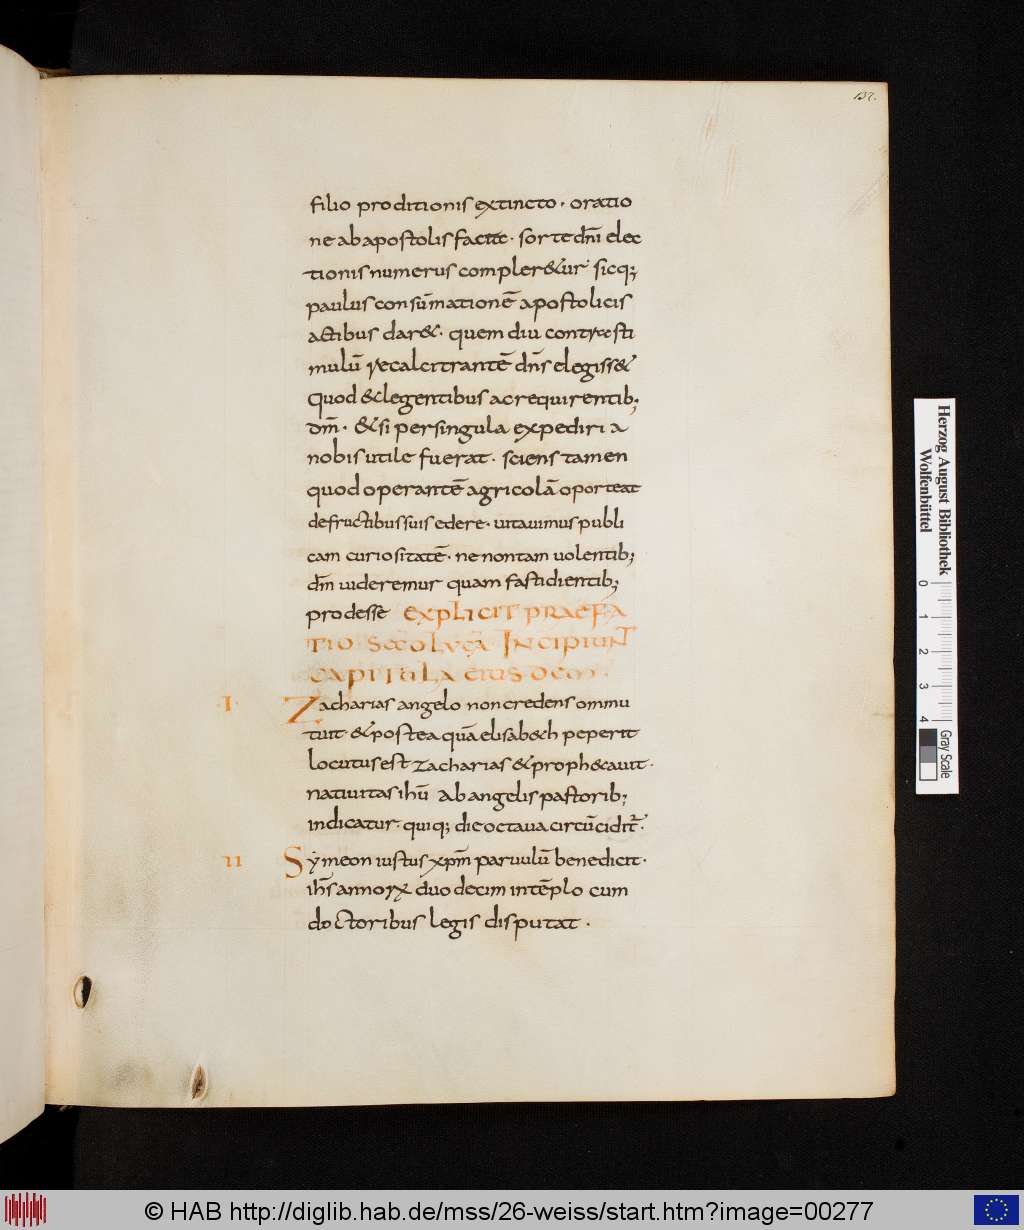 137.
filio proditionis extincto · oratio
ne ab apostolis facta · sorte dn̄i elec
tionis numerus compler&ur sicq;
paulus consūmationē apostolicis
actibus dar& · quem diu contra sti
mulū recalcitrantē dn̄s elegiss&
quod &legentibus ac requirentib;
dm̄ · & si per singula expediri a
nobis utile fuerat · sciens tamen
quod operantē agricolā oporteat
de fructibus suis edere · uitauimus publi
cam curiositatē · ne non tam uolentib;
dm̄ uideremur quam fastidientib;
prodesse explicit praefa
tio sc̄i lucā Incipiunt
capitula eiusdem ·
I· Zacharias angelo non credens ommu
tuit · & postea quā elisab&h peperit
locutus est zacharias & proph&auit ·
natiuitas ihū ab angelis pastorib;
indicatur · quiq; die octaua circūcidit̄ ·
II Symeon iustus xp̄m paruulū benedicit ·
ih̄s annorꝝ duodecim in tēplo cum
doctoribus legis disputat ·
Herzog August Bibliothek
Wolfenbüttel
0 1 2 3 4
Gray Scale
© HAB http://diglib.hab.de/mss/26-weiss/start.htm?image=00277